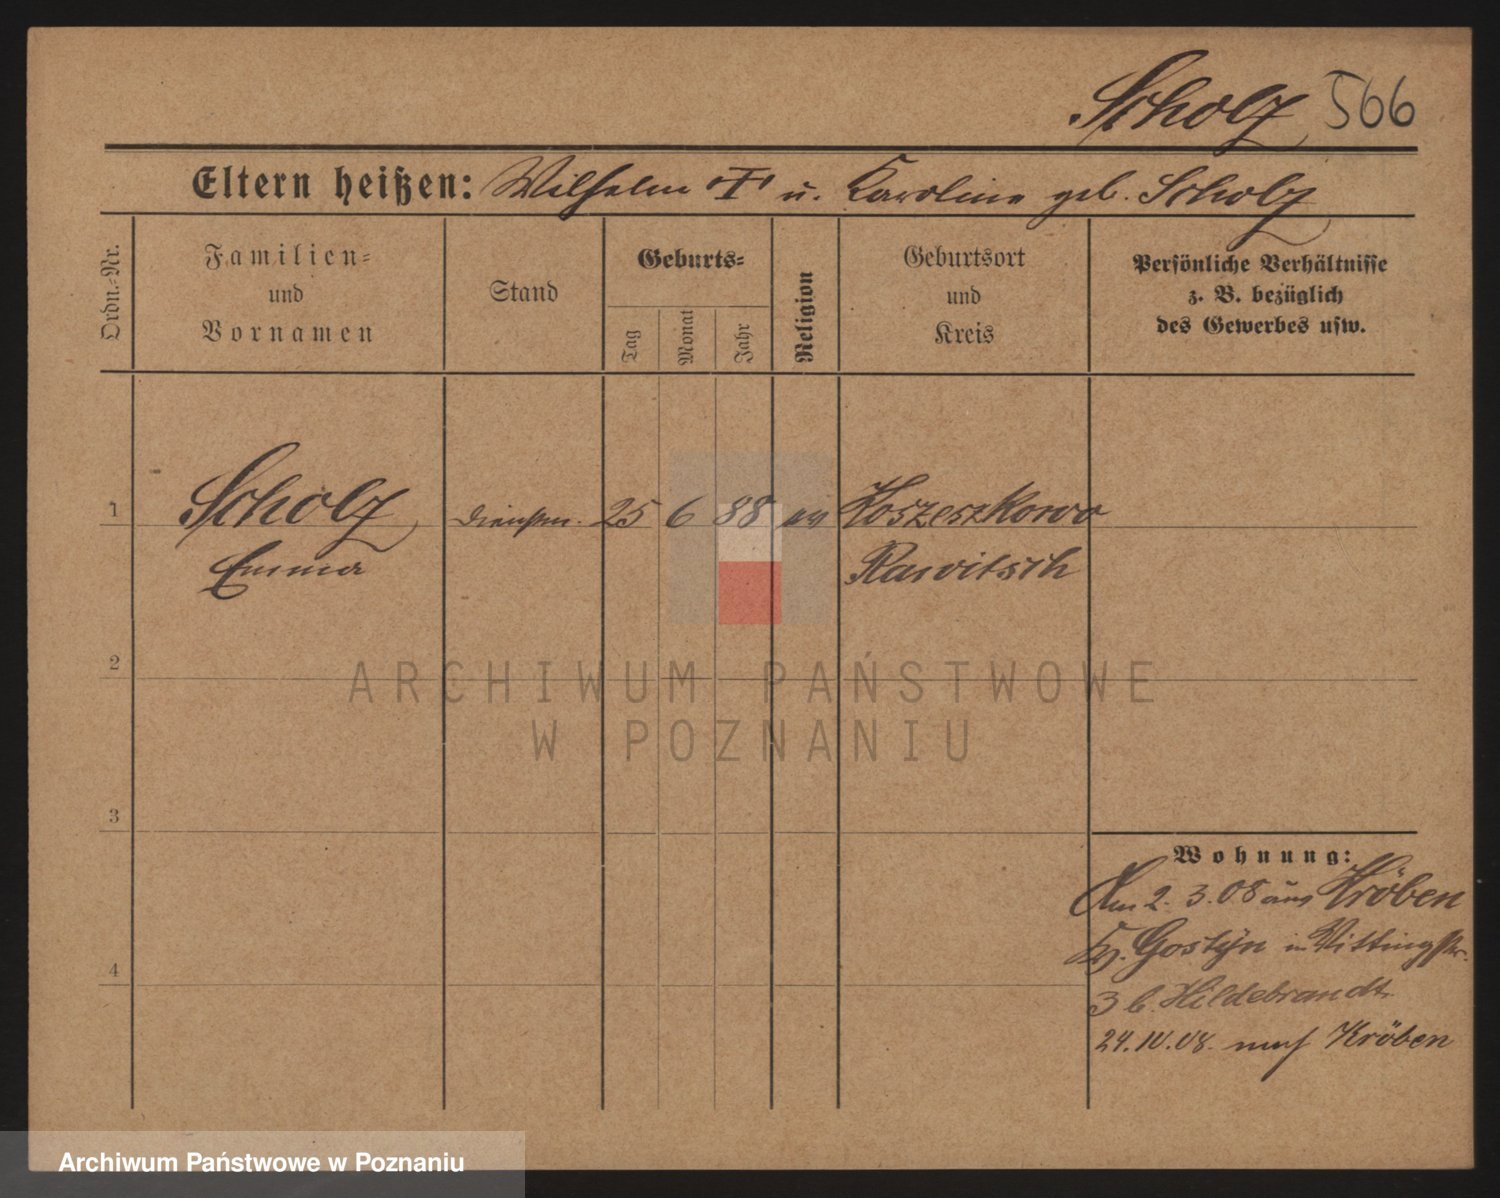 Scholz 566
Eltern heißen: Wilhelm † u. Karoline geb. Scholz
Ordn.-Nr.
Familien-
und
Vornamen
Stand
Geburts-
Tag
Monat
Jahr
Religion
Geburtsort
und
Kreis
Persönliche Verhältnisse
z. B. bezüglich
des Gewerbes usw.
1 Scholz dienstm. 25 6 88 ev Koszeszkowo
Emma Rawitsch
2
ARCHIWUM PAŃSTWOWE
W POZNANIU
3
Wohnung:
Am 2. 3. 08 aus Kröben
Kr. Gostyn in
4
3 b. Hildebrandt
24. IV. 08. nach Kröben
Archiwum Państwowe w Poznaniu